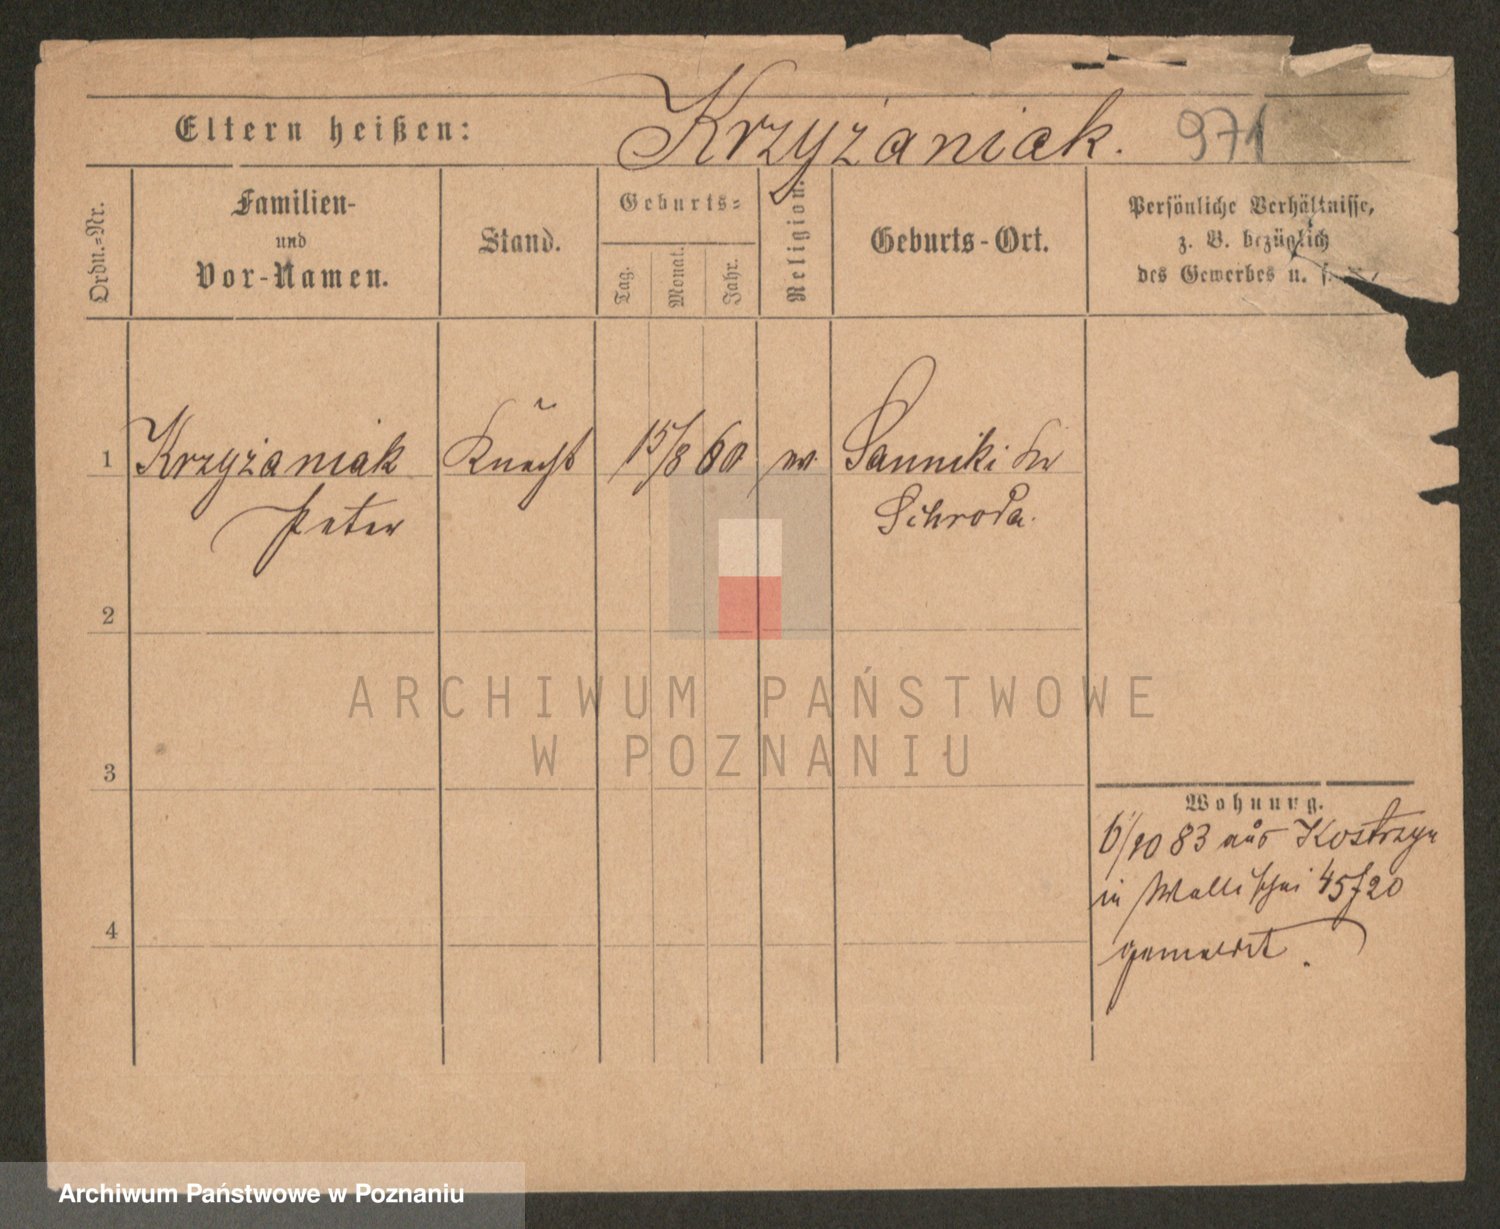 Eltern heißen: Krzyżaniak. 971
Ordn.=Nr.
Familien-
und
Vor-Namen.
Stand.
Geburts=
Tag.
Monat.
Jahr.
Religion.
Geburts-Ort.
Persönliche Verhältnisse,
z. B. bezüglich
des Gewerbes u. s.
1 Krzyżaniak Knecht 15/8 60 Sanniki
Peter Schroda.
2
3
4
Wohnung.
6/10 83 aus Kostrzyn
in Wallischei 45/20
gemeldet.
ARCHIWUM PAŃSTWOWE
W POZNANIU
Archiwum Państwowe w Poznaniu